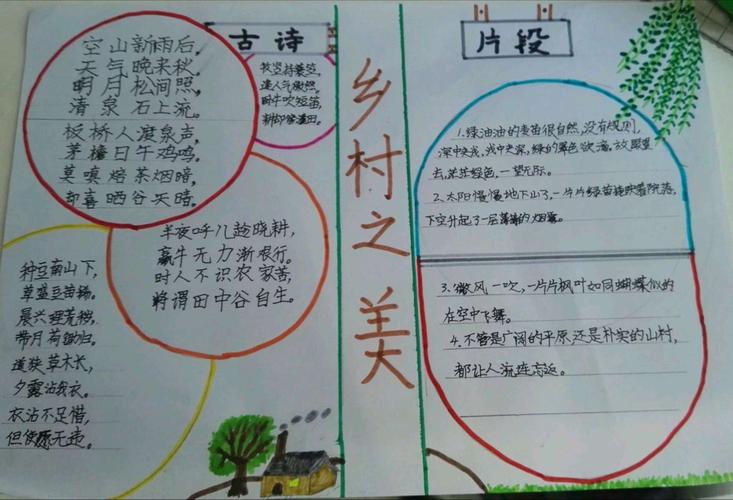 古诗
空山新雨后,
天气晚来秋。
明月松间照,
清泉石上流。
板桥人渡泉声,
茅檐日午鸡鸣。
莫嗔焙茶烟暗,
却喜晒谷天晴。
牧竖持蓑笠,
逢人气傲然。
卧牛吹短笛,
耕却傍溪田。
半夜呼儿趁晓耕,
羸牛无力渐艰行。
时人不识农家苦,
将谓田中谷自生。
种豆南山下,
草盛豆苗稀。
晨兴理荒秽,
带月荷锄归。
道狭草木长,
夕露沾我衣。
衣沾不足惜,
但使愿无违。
乡村之美
片段
1.绿油油的麦苗很自然,没有规则,
深中夹浅,浅中夹深,绿的翠色欲滴,放眼望
去,茫茫绿色,一望无际。
2.太阳慢慢地下山了,一片片绿苗映着院落,
下空升起了一层薄薄的烟雾。
3.微风一吹,一片片枫叶如同蝴蝶似的
在空中飞舞。
4.不管是广阔的平原,还是朴实的山村,
都让人流连忘返。